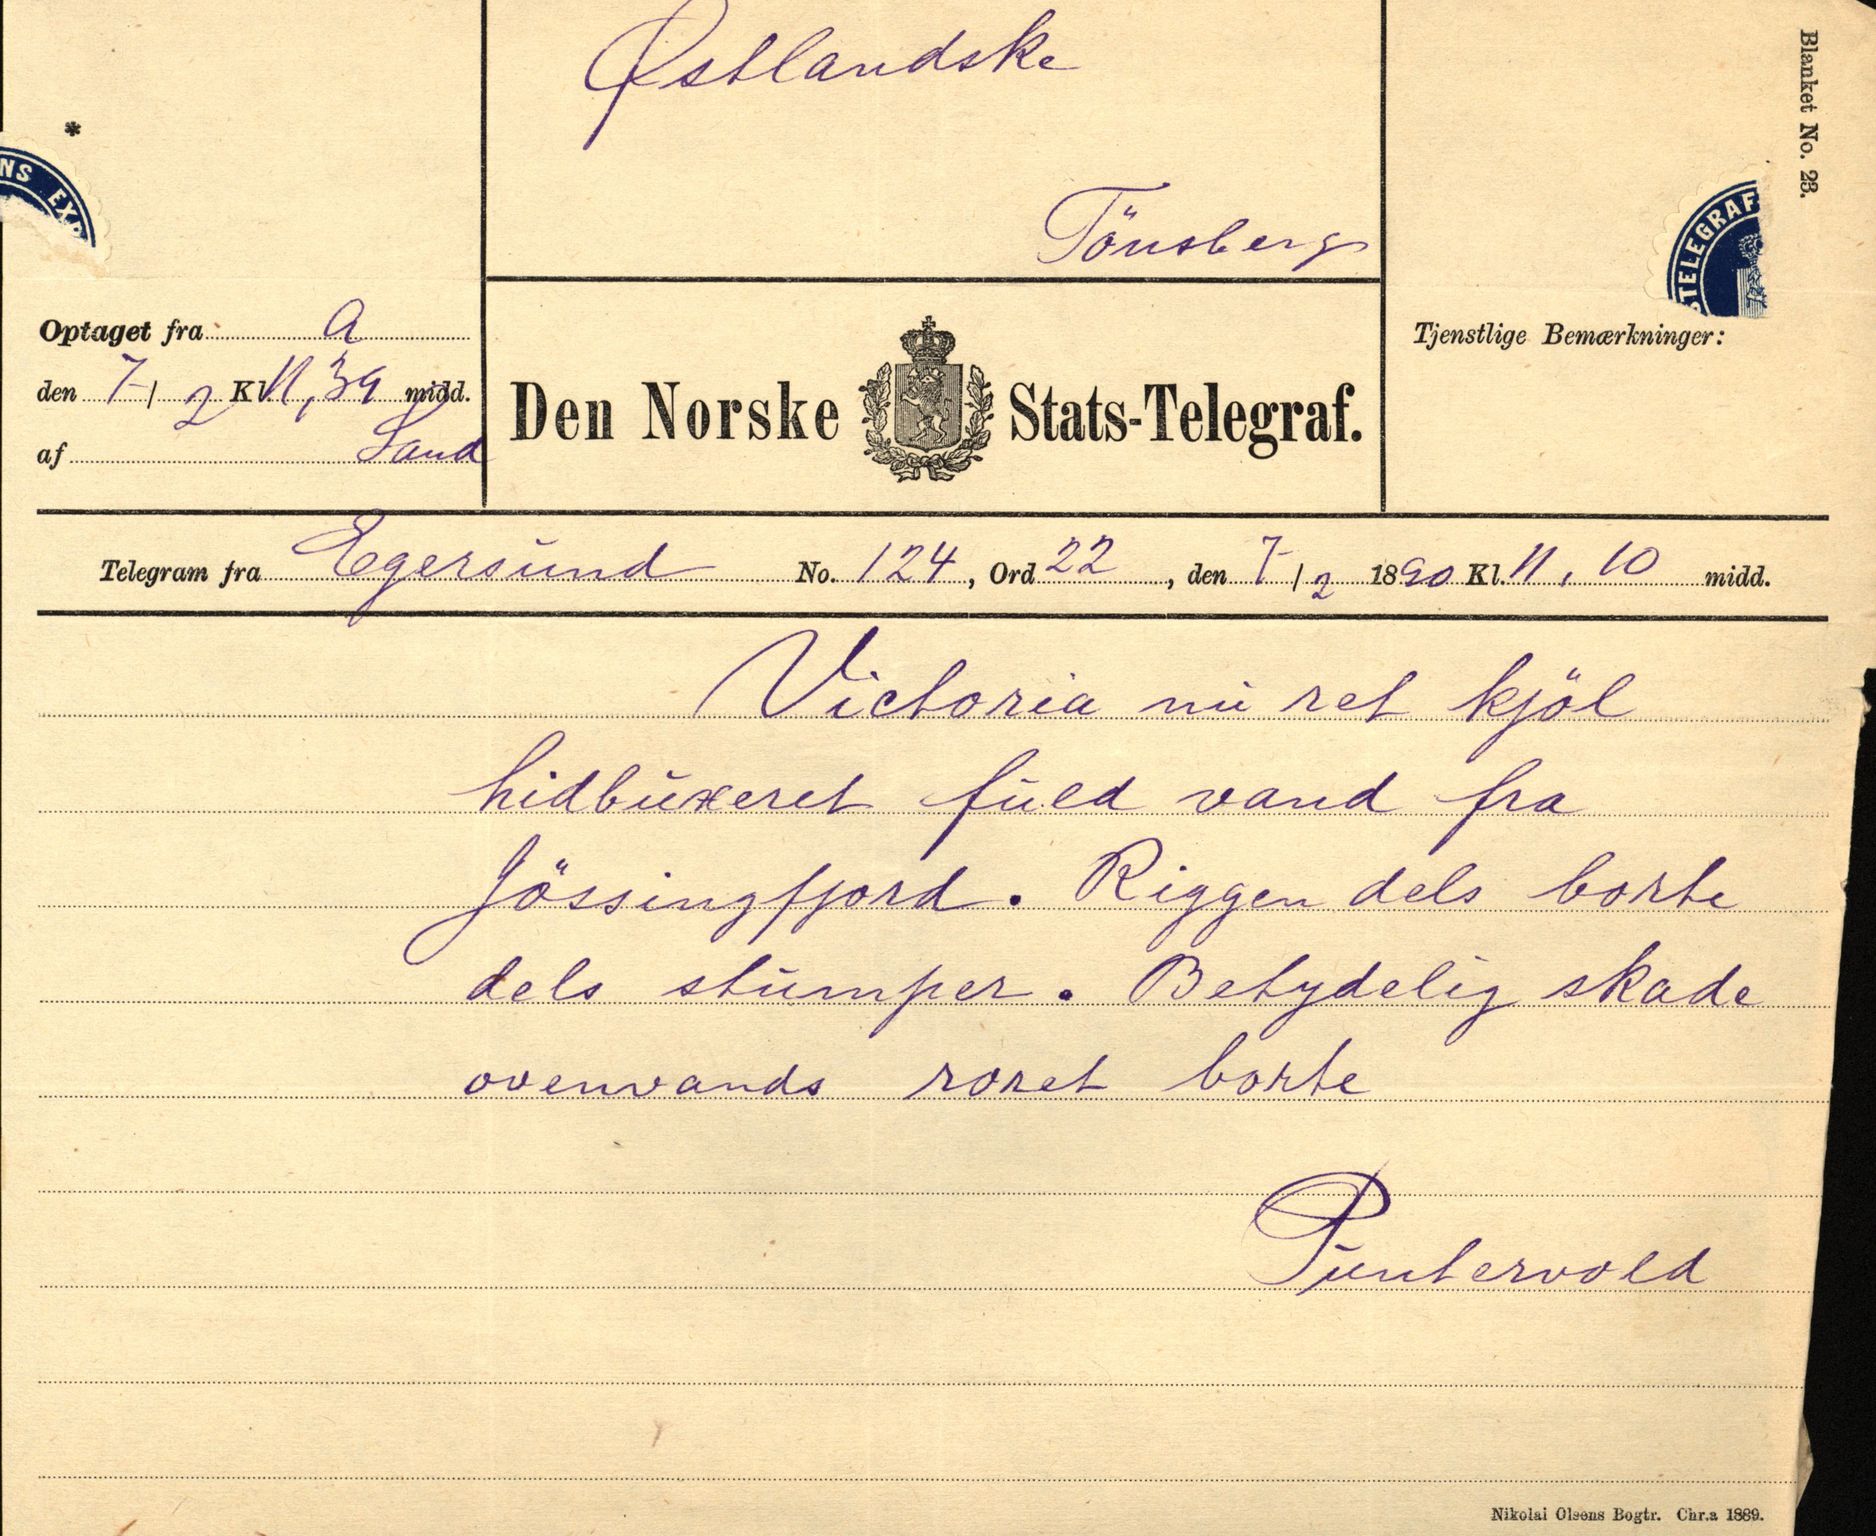 Østlandske
Tönsberg
Blanket No. 23.
*
NS EXP
STELEGRAF
Optaget fra a
den 7/2 Kl. 11,39 midd.
af Sand
Den Norske Stats-Telegraf.
Tjenstlige Bemærkninger:
Telegram fra Egersund No. 124, Ord 22, den 7/2 1890 Kl. 11,10 midd.
Victoria nu ret kjöl
hidbuxeret fuld vand fra
Jössingfjord. Riggen dels borte
dels stumper. Betydelig skade
ovenvands roret borte
Puntervold
Nikolai Olsens Bogtr. Chr.a 1889.